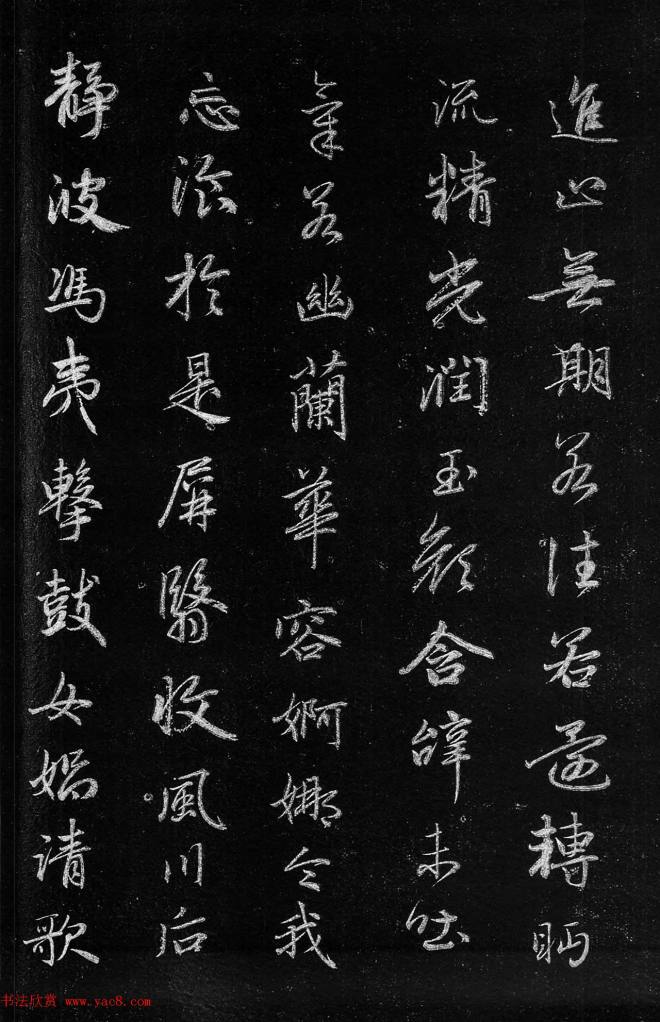 進止無期若往若還轉眄
流精光潤玉顏含辭未吐
氣若幽蘭華容婀娜令我
忘飡於是屏翳收風川后
靜波馮夷擊鼓女媧請歌
书法欣赏 www.yac8.com